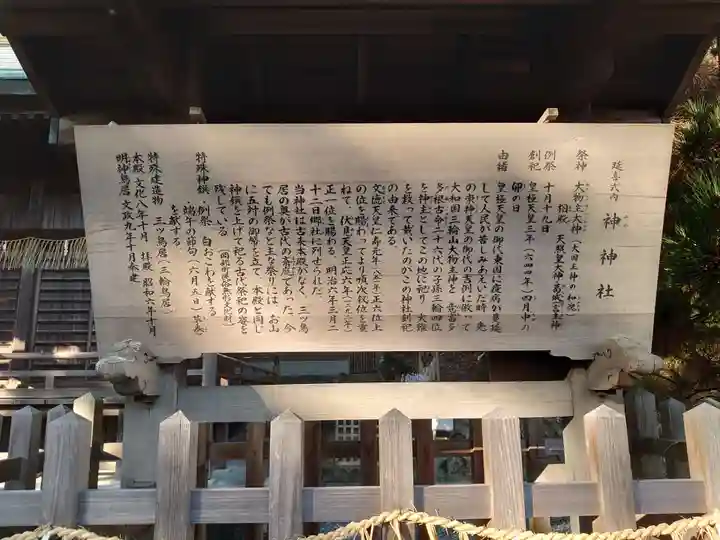 延喜式内 神神社
祭神 大物主大神(大国主神の和魂)
相殿 天照皇大神、葛城一言主神
例祭 十月十九日
創祀 皇極天皇三年(六四四年)四月中の
卯の日
由緒 皇極天皇の御代東国に疫病が蔓延
して人民が苦しみあえいだ時 先
の崇神天皇の御代の吉例に倣って
大和田三輪山大物主神と 意富多
多根古命二十六代の子孫三輪四位
を神主としてこの地に祀り 大難
を救って戴いたのがこの神社創祀
の由来である。
文徳天皇仁寿元年(八五一年)正六位上
の位を賜わってより順次叙位を重
ねて、伏見天皇正応六年(一二九三年)
正一位を賜わる。明治六年三月二
十二日郷社に列せられた。
当神社は古来本殿がなく、三ッ鳥
居の奥が古代の斎庭であった。今
でも例祭など主な祭りには、お山
に五針の御幣を立て 本殿と同じ
神饌を上げて祀る古代祭祀の容を
残している。
特殊神饌 例祭 白おこわを献する
端午の節句(六月五日) ちまき
を献する
特殊建造物 三ッ鳥居(三輪鳥居)
本殿 文化八年十月 拝殿 昭和六年十月
明神鳥居 文政九年十月再建